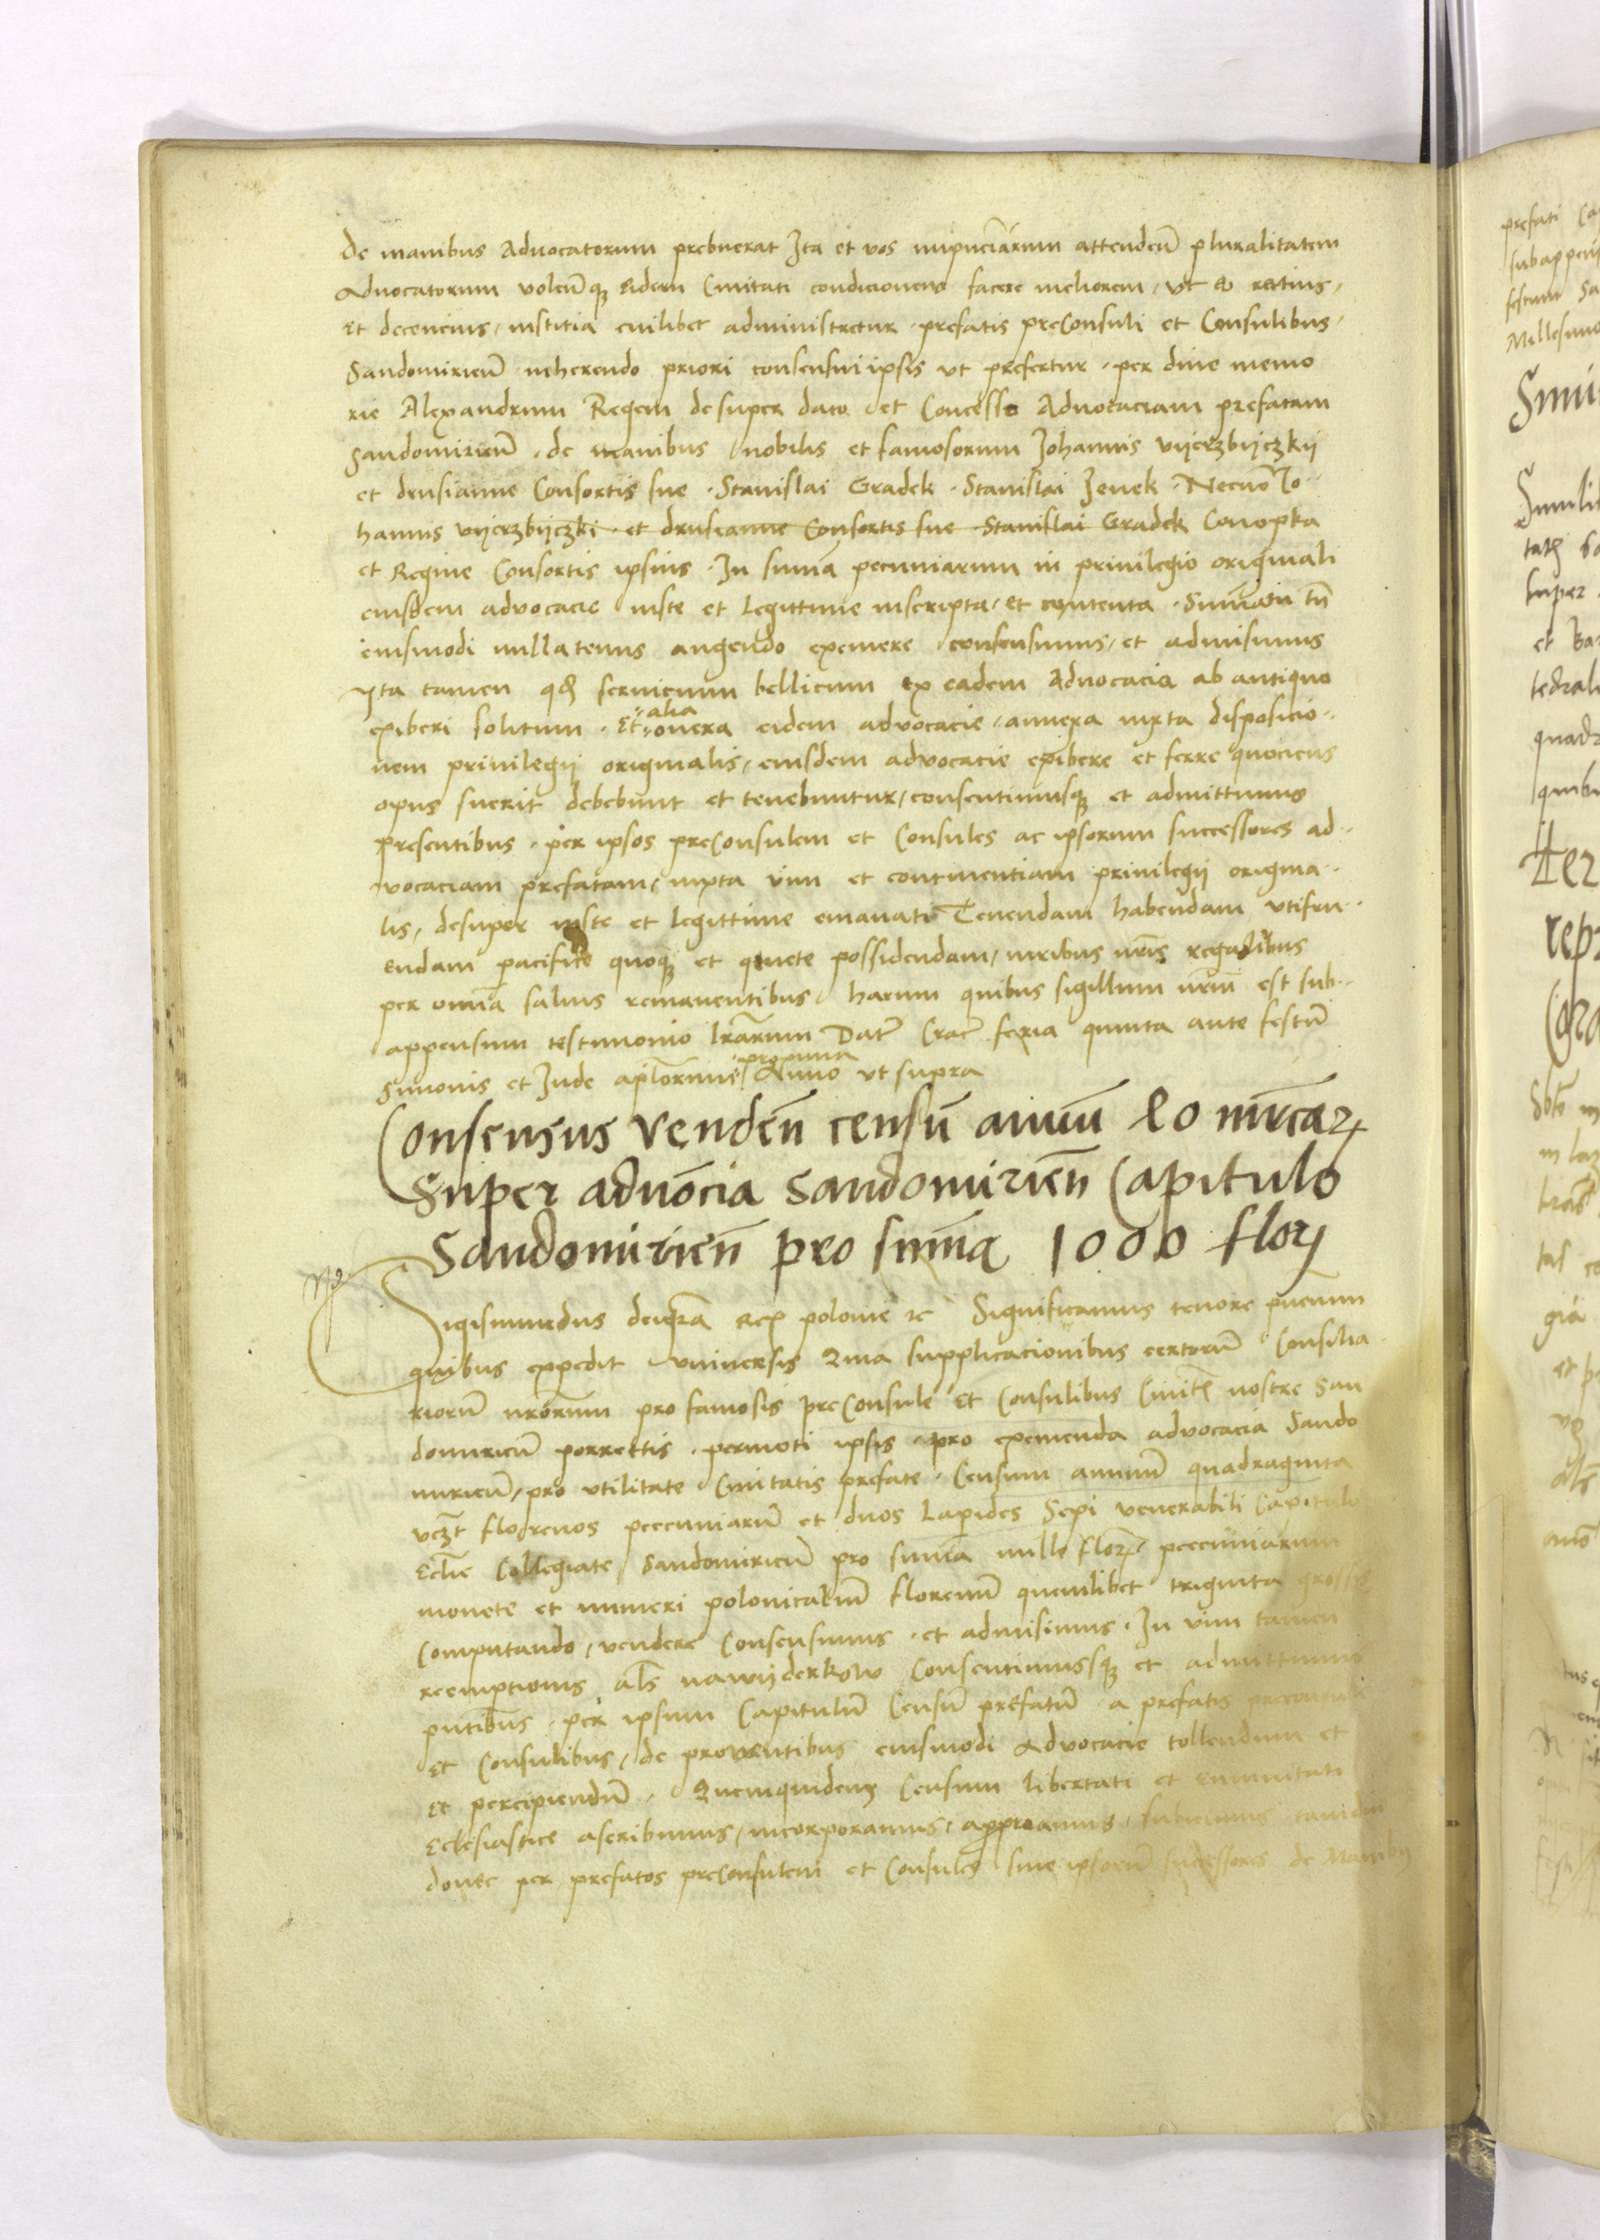 de manibus Advocatorum prebuerat Ita et nos attendeñ pluralitatem
Advocatorum voleñq3 eidem Civitati condicionem facere meliorem, ut eo rectius,
Et decencius, iusticia cuilibet administretur, prefatis preConsuli et Consulibus,
Sandomirieñ inherendo priori consensui ipsis ut prefertur, per dive memo
rie Alexandrum Regem desuper dato et Concesso Advocaciam prefatam
Sandomirieñ, de manibus nobilis et famosorum Johannis vyerzbyczkij
et drusianne Consortis sue, Stanislai Gradek, Stanislai Jenek, Necnō Jo-
hannis vyerzbyczki, et drusianne Consortis sue Stanislai Gradek Conopka
et Regine Consortis ipsius, In suma pecuniarum in privilegio originali
eiusdem advocacie iuste et legittime inscripta, et contenta, Sumam tñ
eiusmodi nullatenus augendo exemere consensimus, et admisimus
Ita tamen qd servicium bellicum ex eadem Advocacia ab antiquo
exiberi solitum, Et alia onera eidem advocacie, annexa iuxta disposicio-
nem privilegii originalis, eiusdem advocacie exibere et ferre quociens
opus fuerit debebunt et tenebuntur, consentimusq3 et admittimus
presentibus, per ipsos preConsulem et Consules ac ipsorum successores ad-
vocaciam prefatam, iuxta vim et continentiam privilegii origina-
lis, desuper iuste et legittime emanati Tenendam habendam utifru-
endam pacifice quoq3 et quiete possidendam, iuribus nr̃is regalibus
per omnia salvis remanentibus, harum quibus sigillum nr̃m est sub-
appensum testimonio lr̃arum Dat Crac feria quinta ante festū
Simonis et Jude apl̃orum proxima Anno ut supra
Consensus vendeñ censū annuū 40 mrcar
Super advōcia Sandomirieñ Capitulo
Sandomirieñ pro suma 1000 flor
Sigismundus dei gr̃a Rex polonie rc Significamus tenore pñcium
quibus expedit universis Quia supplicacionibus certorū Consilia
riorū nr̃orum pro famosis preConsule Et Consulibus Civit nostre San
domirieñ porrectis, permoti ipsis, pro eximenda advocacia Sando
mirieñ, pro utilitate Civitatis prefate, Censum annuū quadraginta
vcz florenos peecuniarū et duos Lapides Sepi venerabili Capitulo
Ecclie Collegiate Sandomirieñ pro suma mille flor peecuniarum
monete et numeri polonicaliū florenū quemlibet triginta grossis
Computando, vendere Consensimus, et admisimus, In vim tamen
reempcionis als nawyderkow Consentimusq3 et admittimus
pñtibus, per ipsum Capitulū Censū prefatū, a prefatis preconsuli
Et Consulibus, de proventibus eiusmodi Advocacie tollendum et
Et percipiendū, Quemquidem Censum libertati et Emunitati
Eclesiastice ascribimus, incorporamus, appropriamus, tamdiu
donec per prefatos preConsulem et Consules sive ipsorū successores de Manibus